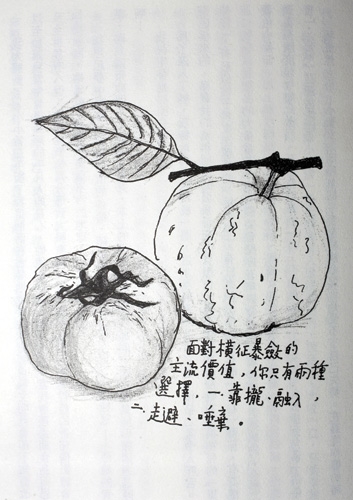 面對橫征暴斂的
主流價值，你只有兩種
選擇，一、靠攏、融入，
二、走避、唾棄。